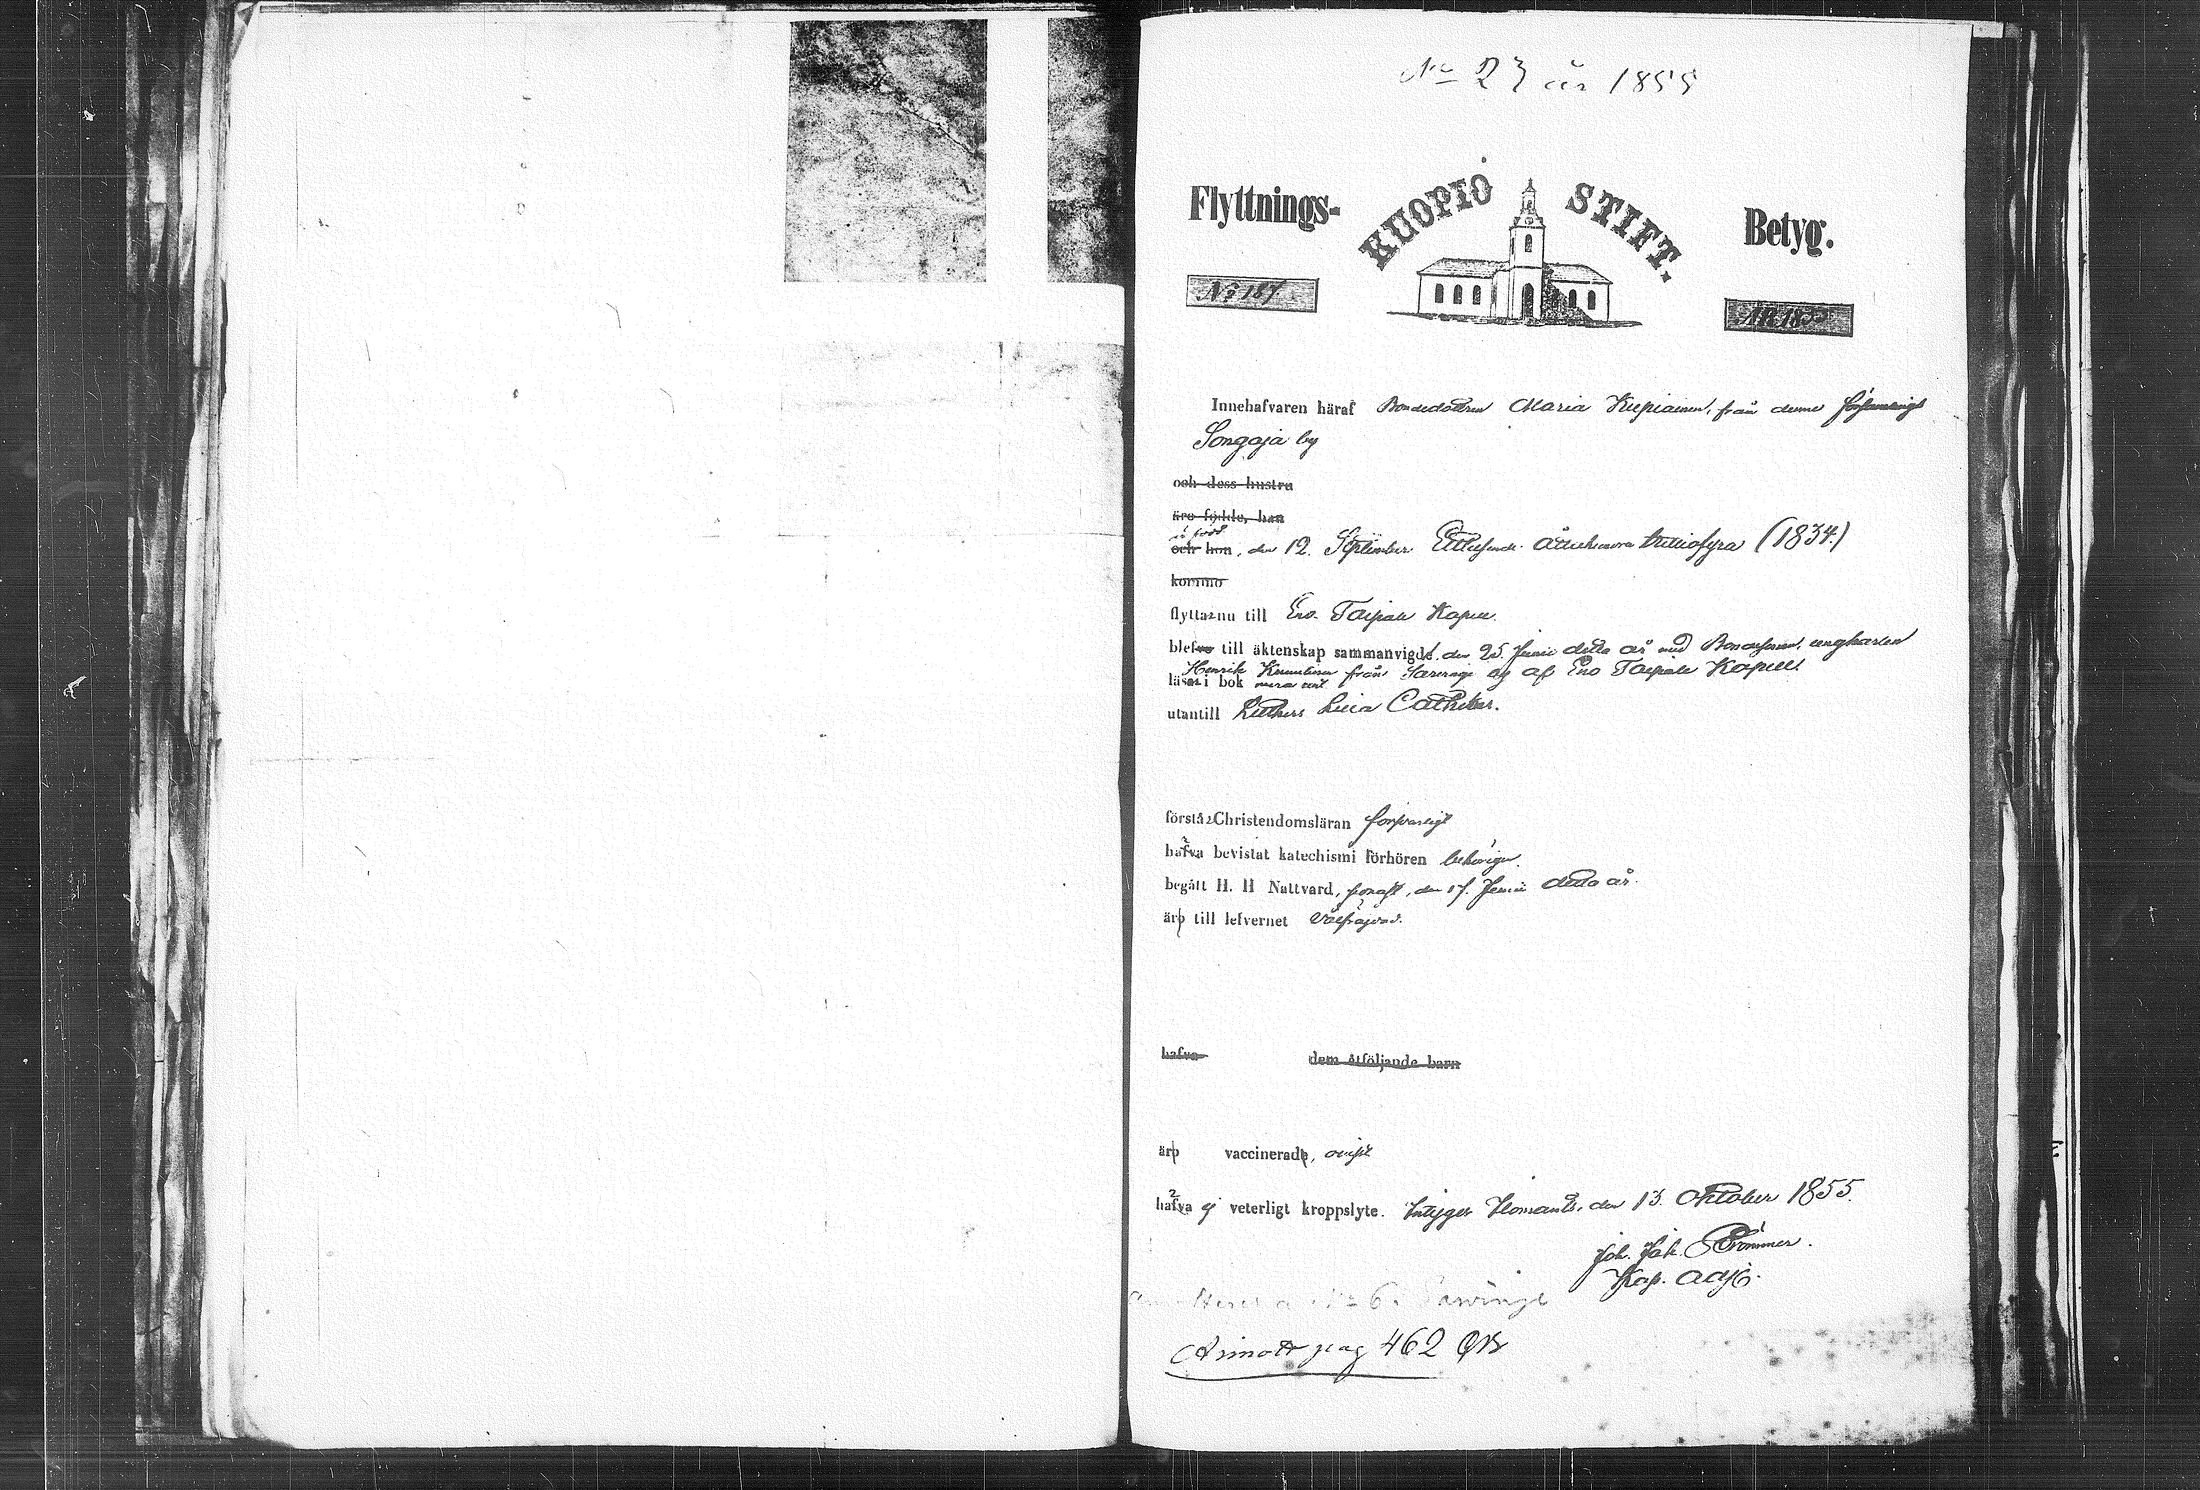 No 23 år 1855
Flyttnings- KUOPIO STIFT. Betyg.
No 187. ÅR 1855
Innehafvaren häraf Bondedottren Maria Kiepiainen, från denne församlings
Songaja by
och dess hustru
äro födde, han
är född
och hon, den 12. September Ettusende Åttahundra trettiofyra (1834.)
komma
flyttar nu till Eno Taipale Kapell.
blefvo till äktenskap sammanvigd den 25 Junii detta år med Bonesonen, ungkarlen
Henrik från by af Eno Taipale Kapell.
läser i bok
utantill Luthers Lilla Cathekes.
förstår Christendomsläran försvarligt
hafva bevistat katechismi förhören behörigen.
begått H. H Nattvard, senast, den 17. Junii detta år.
äro till lefvernet Välfrägdad.
hafva dem åtföljande barn
äro vaccinerade, ovisst
hafva ej veterligt kroppslyte. Intygar Ilomants, den 13. Oktober 1855.
Joh. Jak. Strömmer.
Kap. Adj.
No 6. Sarvinge
pag 462